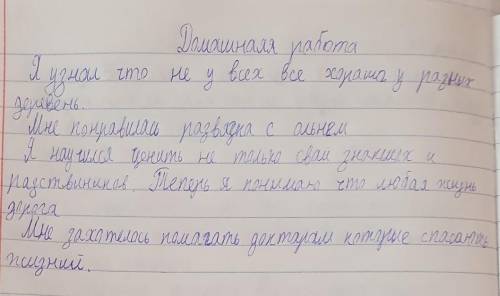 Домашнаяя работа
Я узнал что не у всех все хорашо у разних
деревень.
Мне понравилась развядка с ольнем
Я научился ценить не только свай знакших и
радствиников. Теперь я понимаю что любая жизнь
дорога
Мне захотелось помагать доктарам которые спасают
жизний.